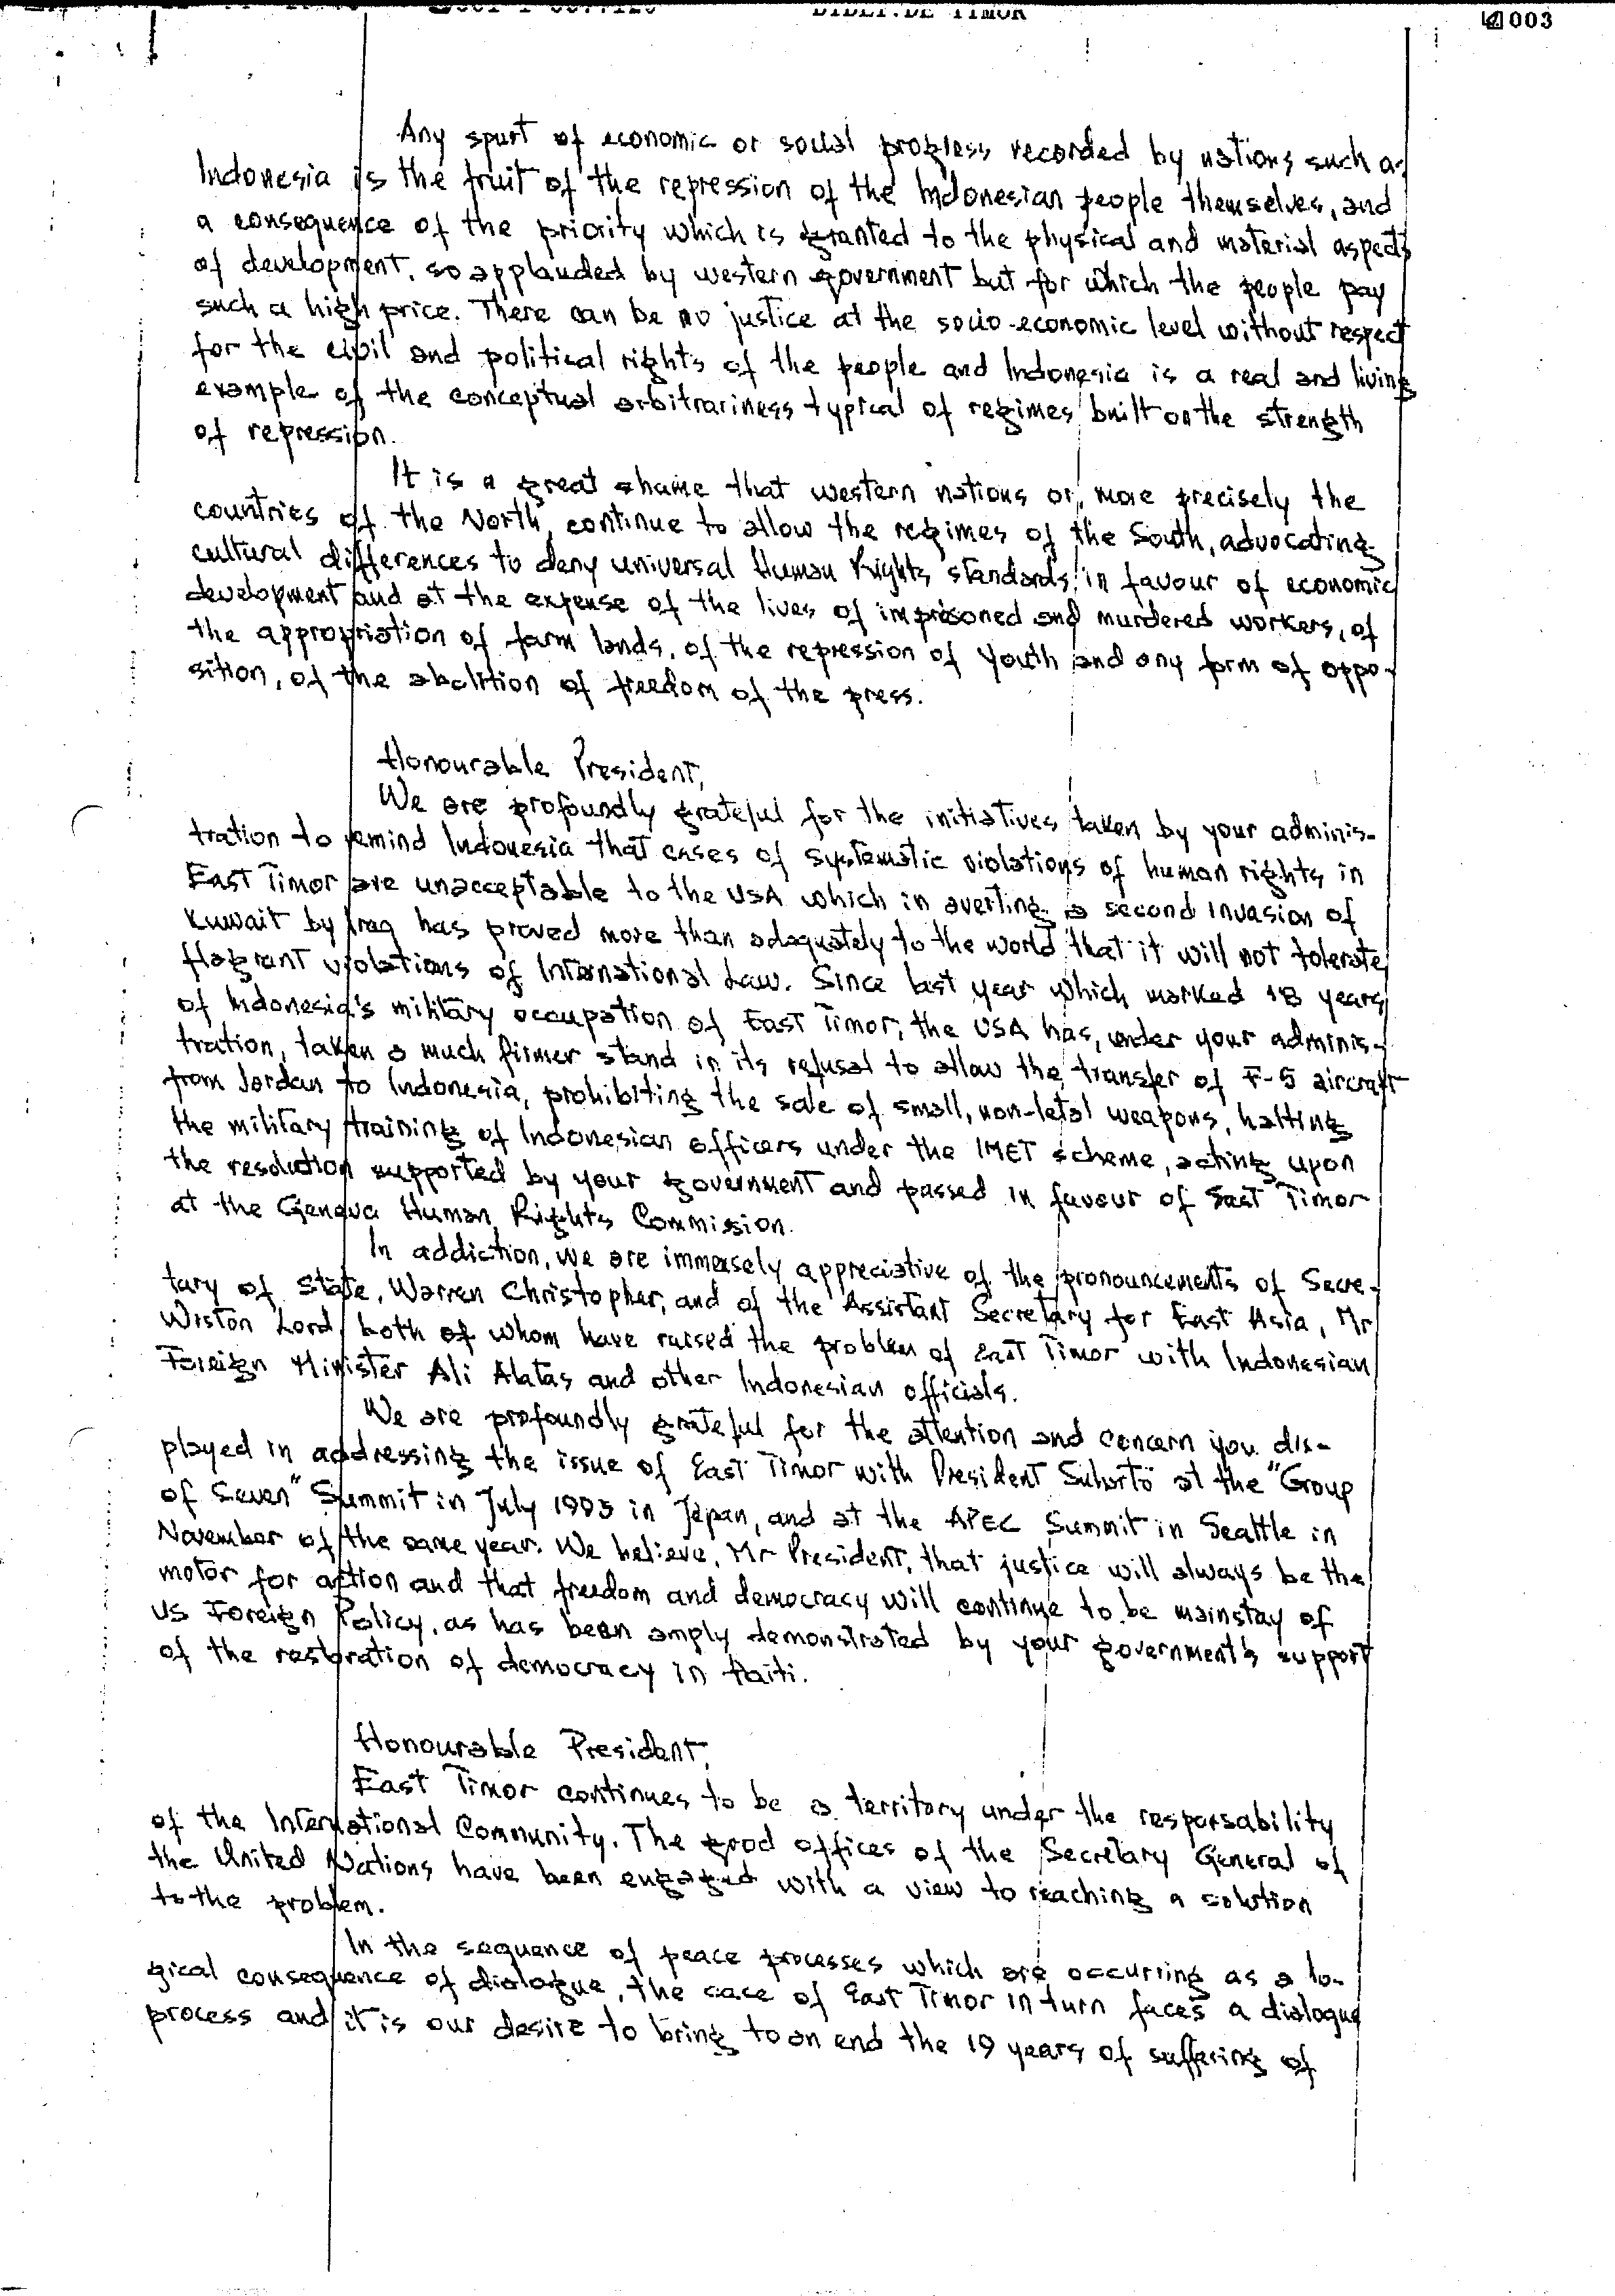 003
Any spurt of economic or social progress recorded by nations such as
Indonesia is the fruit of the repression of the Indonesian people themselves, and
a consequence of the priority which is granted to the physical and material aspects
of development, so applauded by western government but for which the people pay
such a high price. There can be no justice at the socio-economic level without respect
for the civil and political rights of the people and Indonesia is a real and living
example of the conceptual arbitrariness typical of regimes built on the strength
of repression.
It is a great shame that western nations or, more precisely the
countries of the North, continue to allow the regimes of the South, advocating
cultural differences to deny universal Human Rights standards, in favour of economic
development and at the expense of the lives of imprisoned and murdered workers, of
the appropriation of farm lands, of the repression of youth and any form of oppo-
sition, of the abolition of freedom of the press.
Honourable President,
We are profoundly grateful for the initiatives taken by your adminis-
tration to remind Indonesia that cases of systematic violations of human rights in
East Timor are unacceptable to the USA which in averting a second invasion of
Kuwait by Iraq has proved more than adequately to the world that it will not tolerate
flagrant violations of International Law. Since last year which marked 18 years
of Indonesia's military occupation of East Timor, the USA has, under your adminis-
tration, taken a much firmer stand in its refusal to allow the transfer of F-5 aircraft
from Jordan to Indonesia, prohibiting the sale of small, non-letal weapons, halting
the military training of Indonesian officers under the IMET scheme, acting upon
the resolution supported by your government and passed in favour of East Timor
at the Geneva Human Rights Commission.
In addiction, we are immensely appreciative of the pronouncements of Secre-
tary of State, Warren Christopher, and of the Assistant Secretary for East Asia, Mr
Wiston Lord, both of whom have raised the problem of East Timor with Indonesian
Foreign Minister Ali Alatas and other Indonesian officials.
We are profoundly grateful for the attention and concern you dis-
played in addressing the issue of East Timor with President Suharto at the "Group
of Seven" Summit in July 1993 in Japan, and at the APEC Summit in Seattle in
November of the same year. We believe, Mr President, that justice will always be the
motor for action and that freedom and democracy will continue to be mainstay of
US Foreign Policy, as has been amply demonstrated by your government's support
of the restoration of democracy in Haiti.
Honourable President,
East Timor continues to be a territory under the responsability
of the International Community. The good offices of the Secretary General of
the United Nations have been engaged with a view to reaching a solution
to the problem.
In the sequence of peace processes which are occurring as a lo-
gical consequence of dialogue, the case of East Timor in turn faces a dialogue
process and it is our desire to bring to an end the 19 years of suffering of